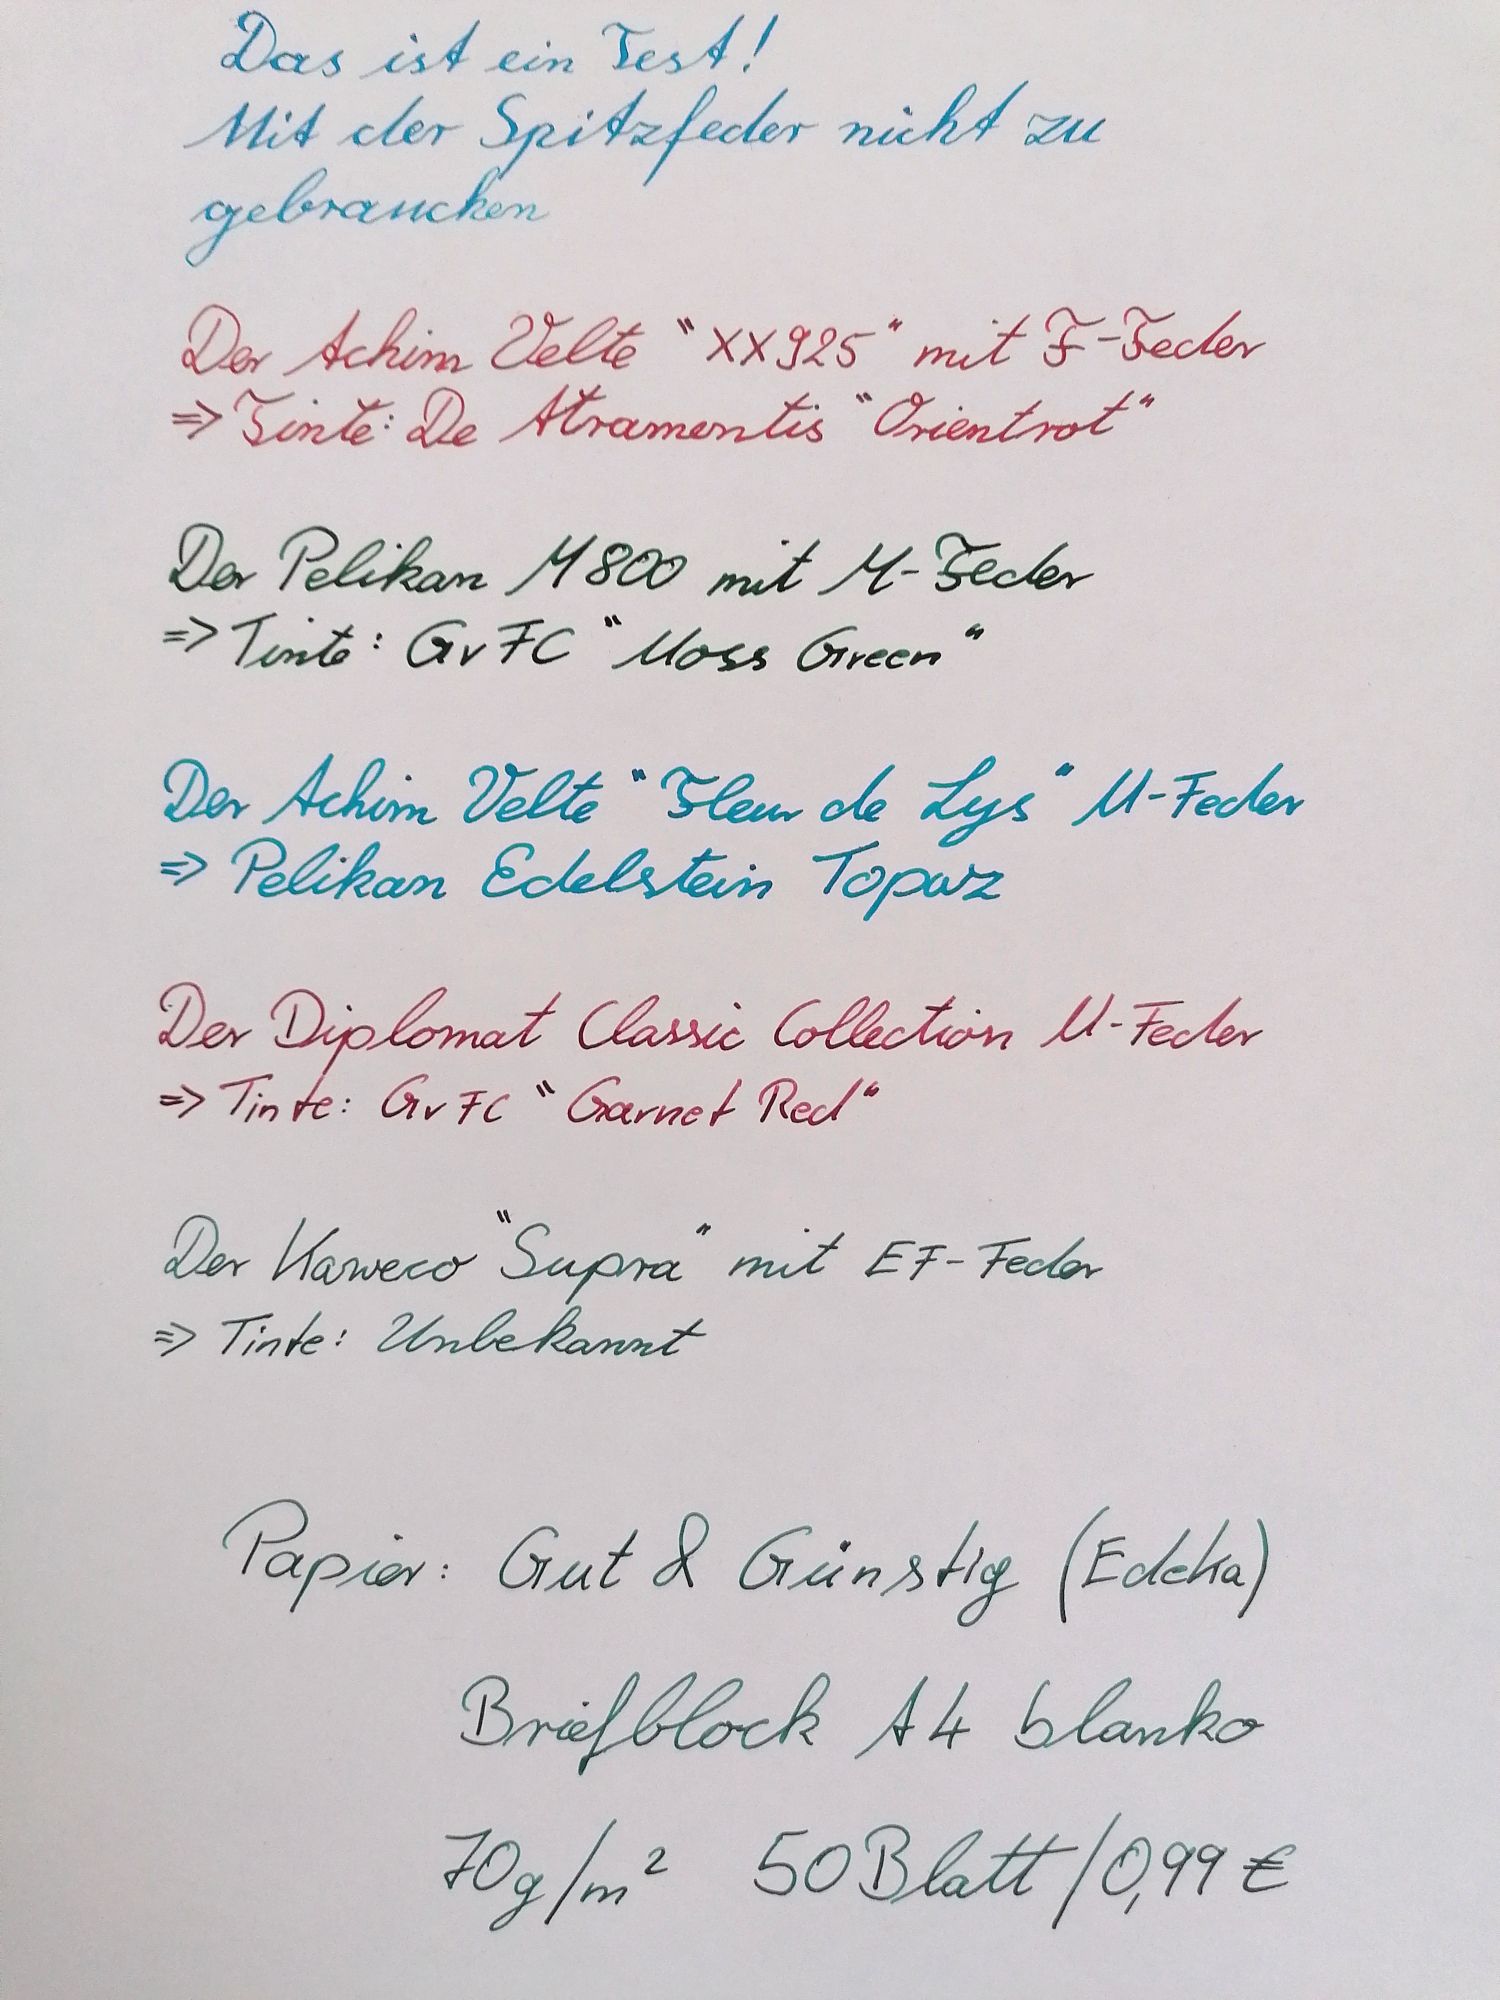 Das ist ein Test!
Mit der Spitzfeder nicht zu
gebrauchen
Der Achim Velte "XX925" mit F-Feder
=> Tinte: De Atramentis "Orientrot"
Der Pelikan M800 mit M-Feder
=> Tinte: GvFC "Moss Green"
Der Achim Velte "Fleur de Lys" M-Feder
=> Pelikan Edelstein Topaz
Der Diplomat Classic Collection M-Feder
=> Tinte: GvFC "Garnet Red"
Der Kaweco "Supra" mit EF-Feder
=> Tinte: Unbekannt
Papier: Gut & Günstig (Edeka)
Briefblock A4 blanko
70g/m² 50 Blatt/0,99 €